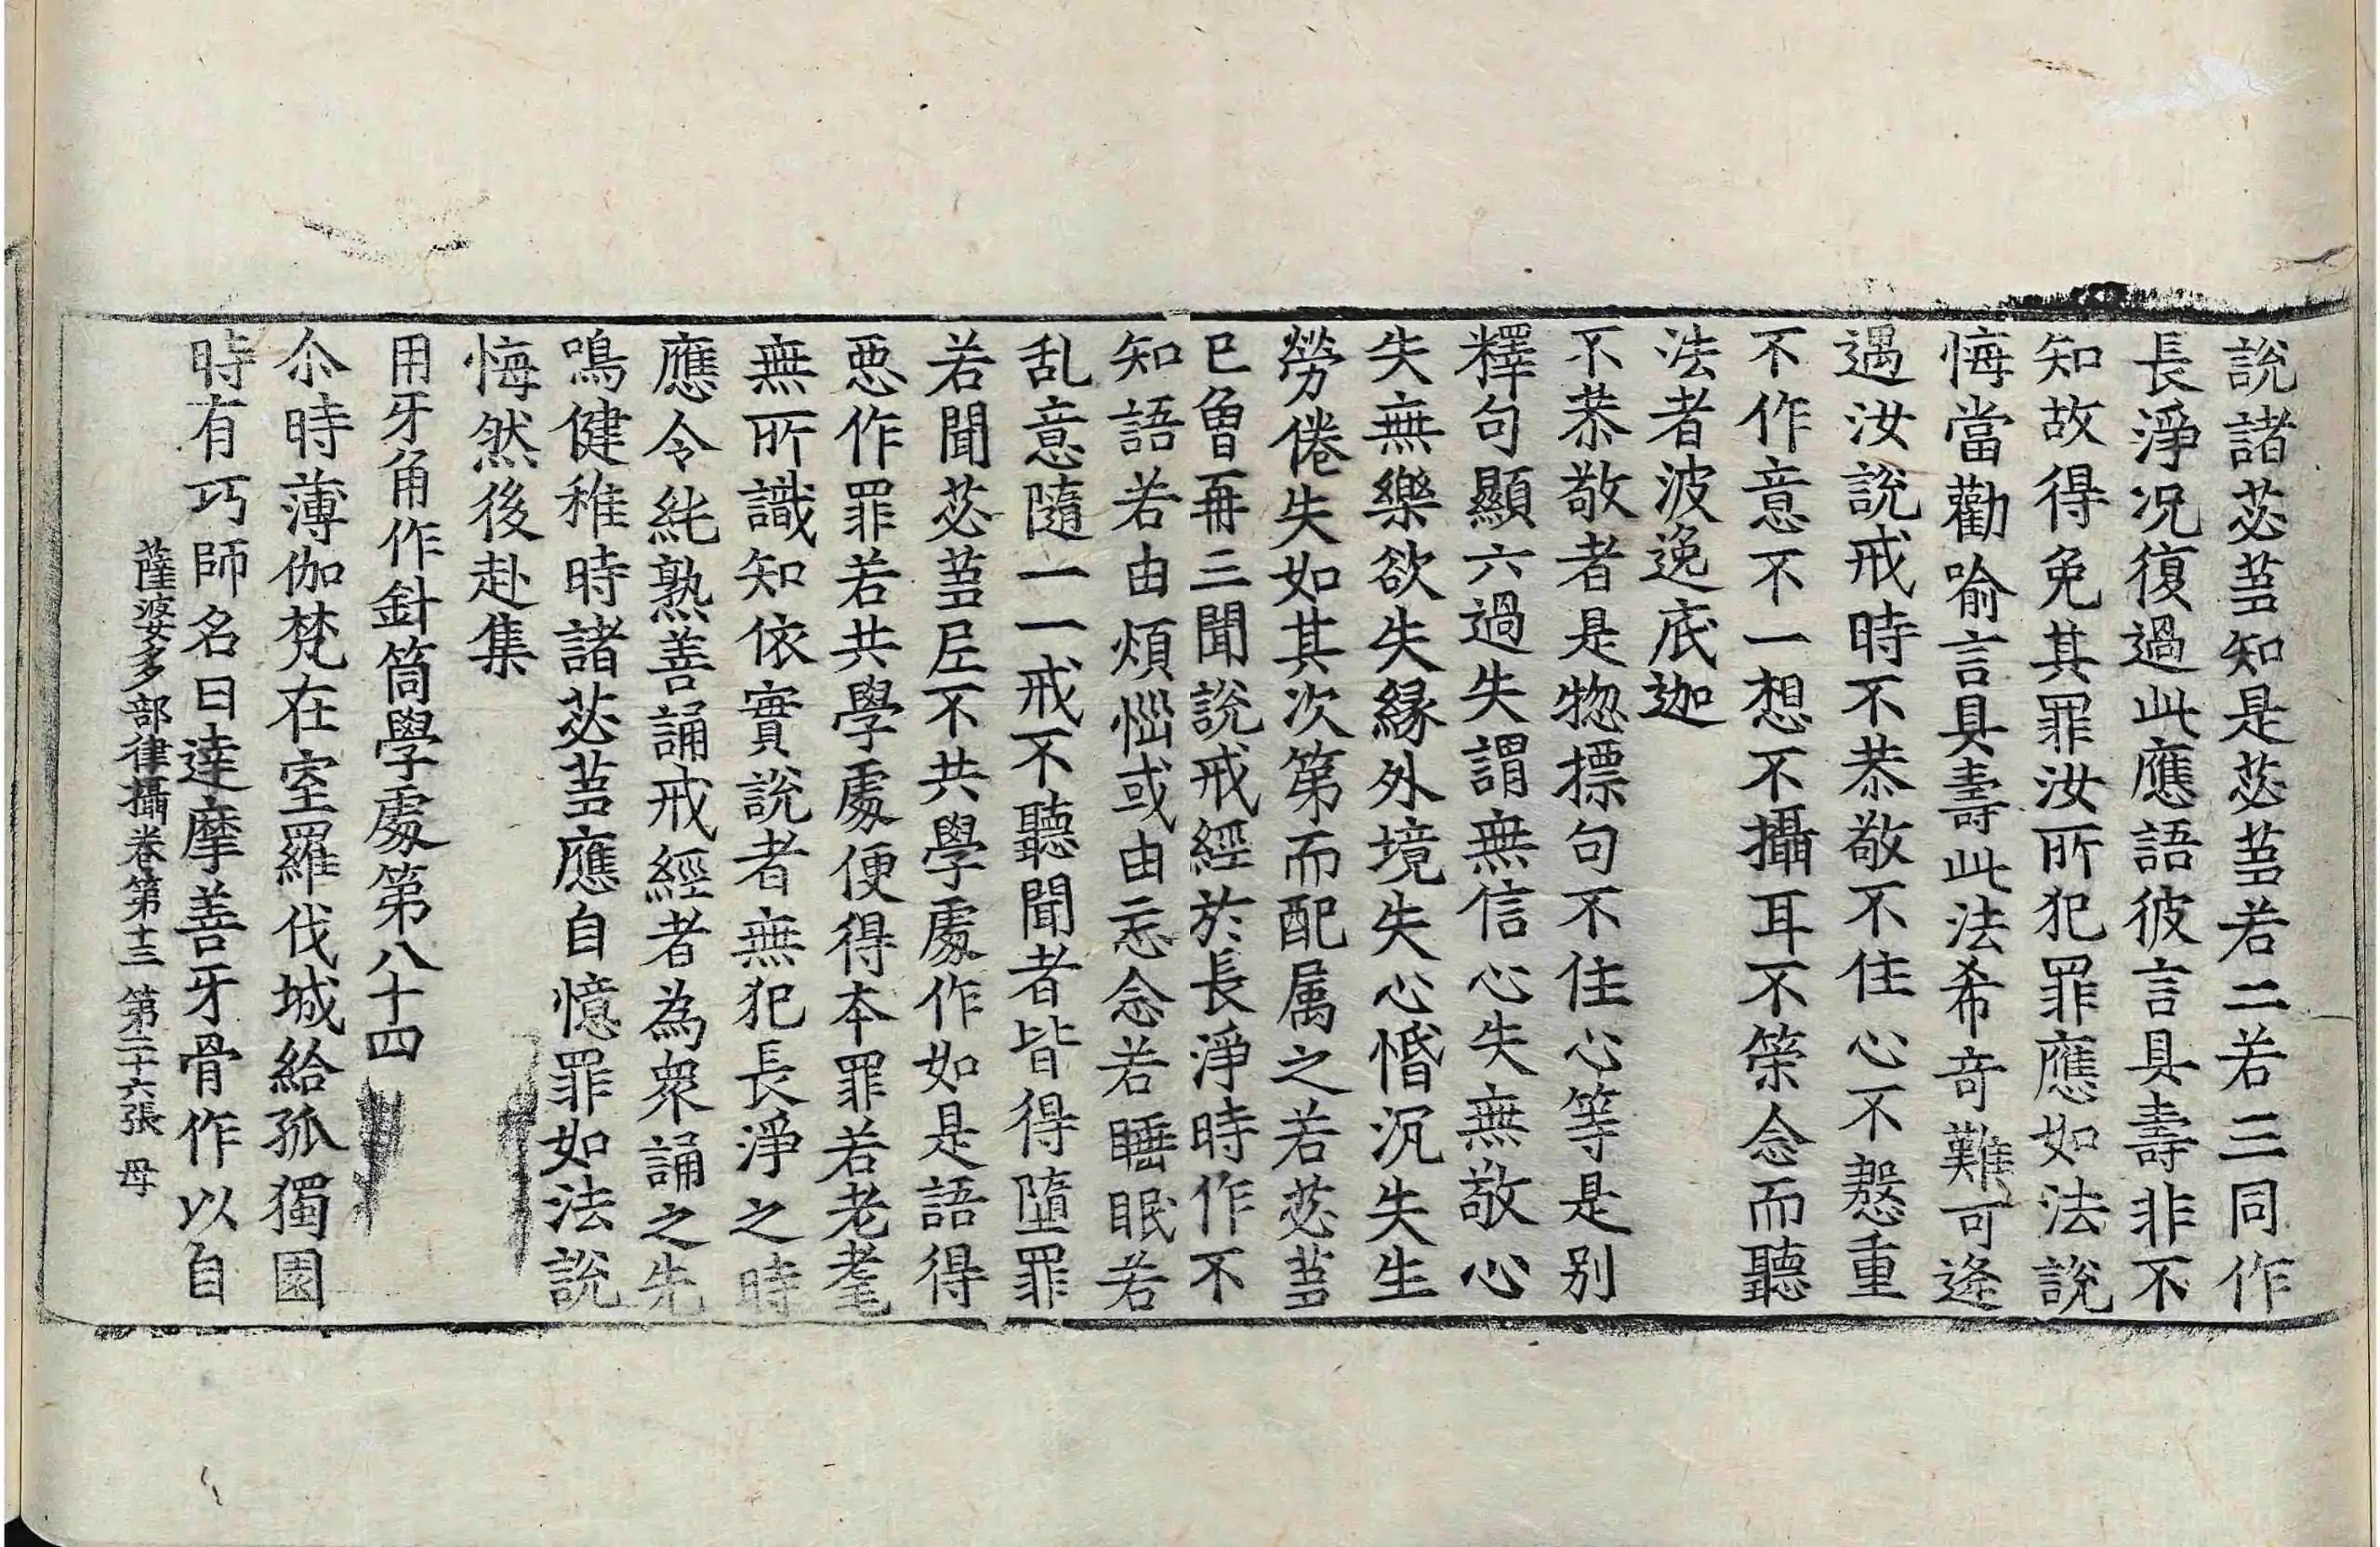 說諸苾蒭知是苾蒭若二若三同作
長淨况復過此應語彼言具壽非不
知故得免其罪汝所犯罪應如法說
悔當勸喻言具壽此法希竒難可逢
遇汝說戒時不恭敬不住心不慇重
不作意不一想不攝耳不䇿念而聽
法者波逸底迦
不恭敬者是惣摽句不住心等是別
釋句顯六過失謂無信心失無敬心
失無樂欲失失緣外境失心惛沉失生
勞倦失如其次第而配属之若苾蒭
已曾再三聞說戒經於長淨時作不
知語若由煩惱或由忘念若睡眠若
乱意隨一一戒不聽聞者皆得墮罪
若聞苾蒭𡰱不共學處作如是語得
惡作罪若共學處便得本罪若老耄
無所識知依實說者無犯長淨之時
應令純熟善誦戒經者為衆誦之先
鳴健稚時諸苾蒭應自憶罪如法說
悔然後赴集
用牙角作針筒學處第八十四
尒時薄伽梵在室羅伐城給孤獨園
時有巧師名曰達摩善牙骨作以自
薩婆多部律攝卷第十三 第二十六張 母